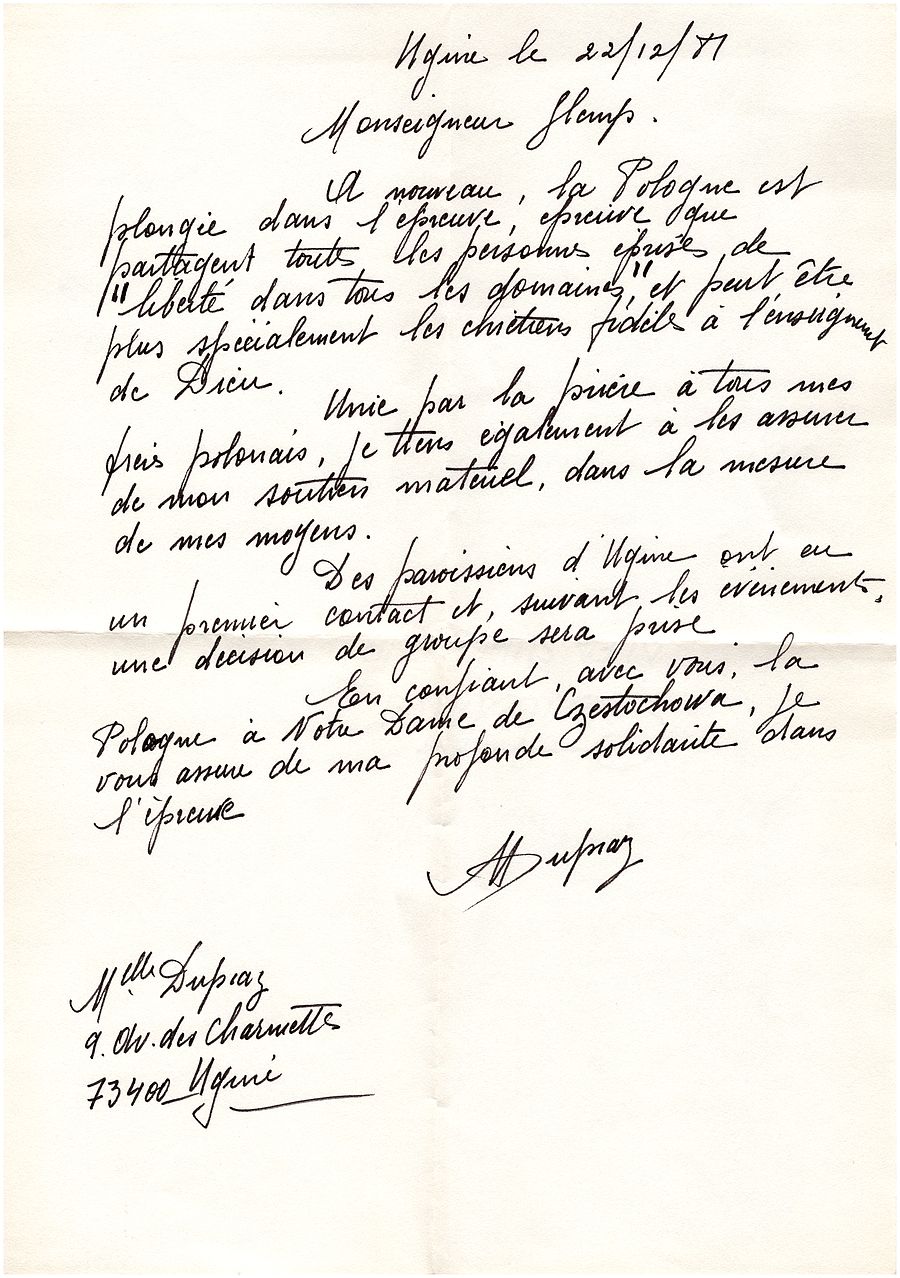 Ugine le 22/12/81
Monseigneur Glemp.
A nouveau, la Pologne est
plongée dans l'épreuve, épreuve que
partagent toutes les personnes éprises de
"liberté dans tous les domaines", et peut être
plus spécialement les chrétiens fidèles à l'enseignement
de Dieu.
Unie par la prière à tous mes
frères polonais, je tiens également à les assurer
de mon soutien matériel, dans la mesure
de mes moyens.
Des paroissiens d'Ugine ont eu
un premier contact et, suivant les évènements,
une décision de groupe sera prise
En confiant, avec vous, la
Pologne à Notre Dame de Czestochowa, je
vous assure de ma profonde solidarité dans
l'épreuve
MDupraz
Melle Dupraz
9. Av. des Charmettes
73400 Ugine